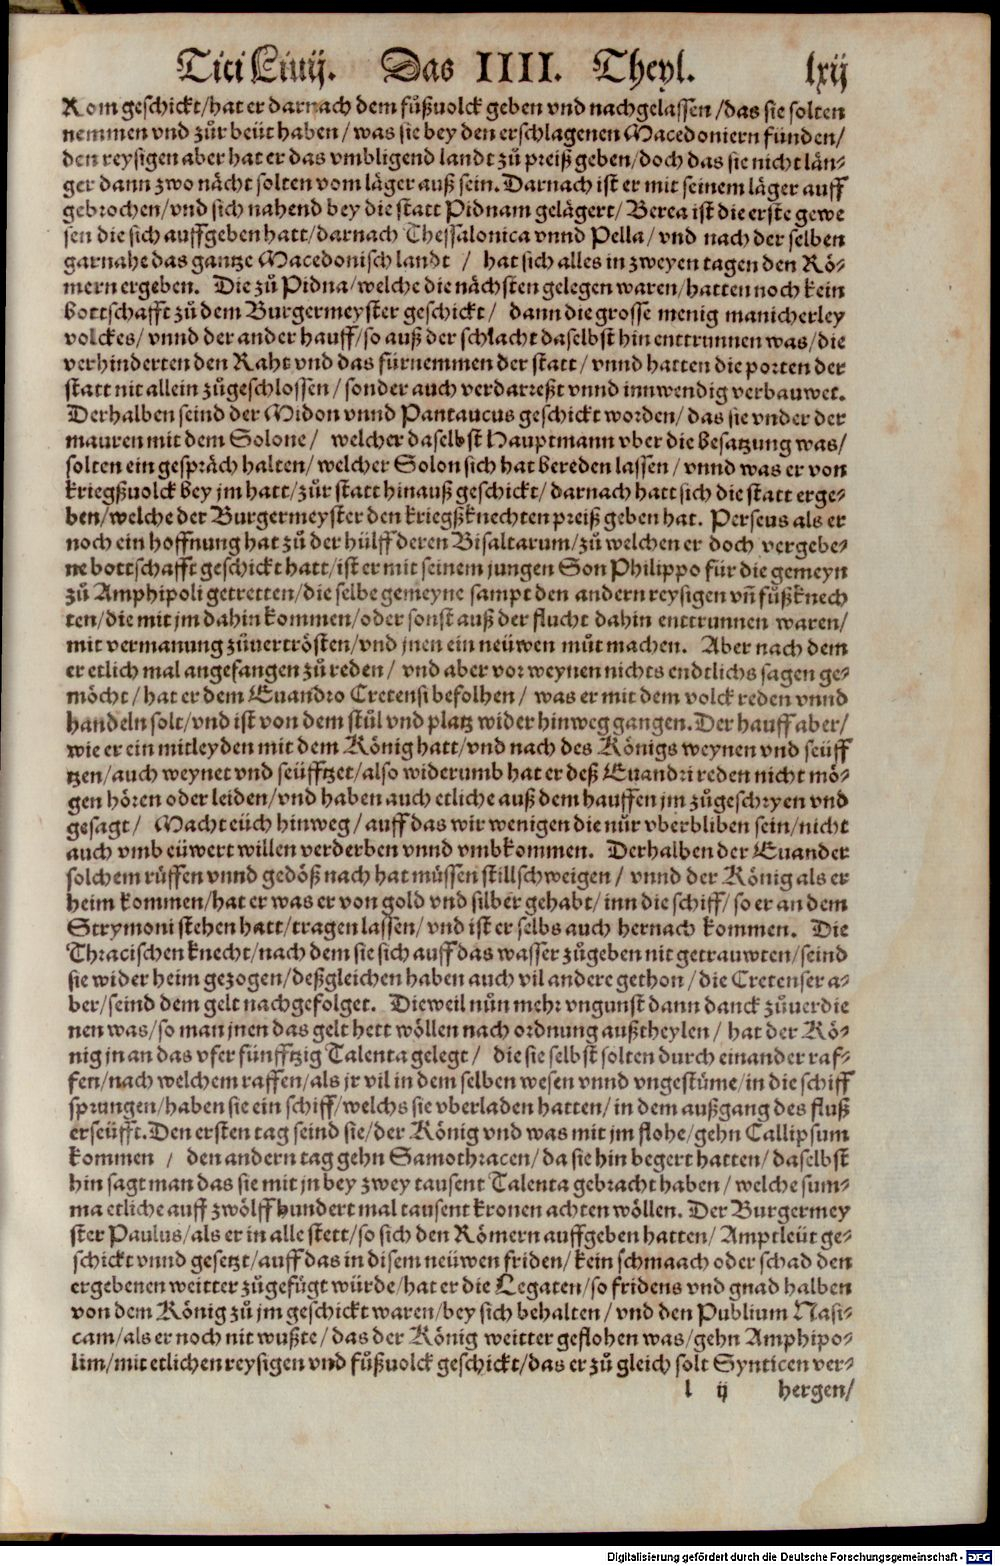 Titi Liuij. Das IIII. Theyl. lxij
Rom geschickt/hat er darnach dem fůßuolck geben vnd nachgelassen/das sie solten
nemmen vnd zůr beüt haben/was sie bey den erschlagenen Macedoniern fünden/
den reysigen aber hat er das vmbligend landt zů preiß geben/doch das sie nicht län-
ger dann zwo nächt solten vom läger auß sein. Darnach ist er mit seinem läger auff
gebrochen/vnd sich nahend bey die statt Pidnam gelägert/Berea ist die erste gewe
sen die sich auffgeben hatt/darnach Thessalonica vnnd Pella/vnd nach der selben
garnahe das gantze Macedonisch landt / hat sich alles in zweyen tagen den Rö-
mern ergeben. Die zů Pidna/welche die nächsten gelegen waren/hatten noch kein
bottschafft zů dem Burgermeyster geschickt/ dann die grosse menig manicherley
volckes/vnnd der ander hauff/so auß der schlacht daselbst hin enttrunnen was/die
verhinderten den Raht vnd das fürnemmen der statt/vnnd hatten die porten der
statt nit allein zůgeschlossen/sonder auch verdarreßt vnnd innwendig verbauwet.
Derhalben seind der Midon vnnd Pantaucus geschickt worden/das sie vnder der
mauren mit dem Solone/ welcher daselbst Hauptmann vber die besatzung was/
solten ein gespräch halten/welcher Solon sich hat bereden lassen/vnnd was er von
kriegßuolck bey jm hatt/zůr statt hinauß geschickt/darnach hatt sich die statt erge-
ben/welche der Burgermeyster den kriegßknechten preiß geben hat. Perseus als er
noch ein hoffnung hat zů der hülff deren Bisaltarum/zů welchen er doch vergebe-
ne bottschafft geschickt hatt/ist er mit seinem jungen Son Philippo für die gemeyn
zů Amphipoli getretten/die selbe gemeyne sampt den andern reysigen vñ fůßknech
ten/die mit jm dahin kommen/oder sonst auß der flucht dahin enttrunnen waren/
mit vermanung zůuertrösten/vnd jnen ein neüwen můt machen. Aber nach dem
er etlich mal angefangen zů reden/ vnd aber vor weynen nichts endtlichs sagen ge-
möcht/hat er dem Euandro Cretensi befolhen/ was er mit dem volck reden vnnd
handeln solt/vnd ist von dem stůl vnd platz wider hinweg gangen. Der hauff aber/
wie er ein mitleyden mit dem König hatt/vnd nach des Königs weynen vnd seüff
tzen/auch weynet vnd seüfftzet/also widerumb hat er deß Euandri reden nicht mö-
gen hören oder leiden/vnd haben auch etliche auß dem hauffen jm zůgeschryen vnd
gesagt/ Macht eüch hinweg/auff das wir wenigen die nůr vberbliben sein/nicht
auch vmb eüwert willen verderben vnnd vmbkommen. Derhalben der Euander
solchem rüffen vnnd gedöß nach hat müssen stillschweigen/ vnnd der König als er
heim kommen/hat er was er von gold vnd silber gehabt/inn die schiff/so er an dem
Strymoni stehen hatt/tragen lassen/vnd ist er selbs auch hernach kommen. Die
Thracischen knecht/nach dem sie sich auff das wasser zůgeben nit getrauwten/seind
sie wider heim gezogen/deßgleichen haben auch vil andere gethon/die Cretenser a-
ber/seind dem gelt nachgefolget. Dieweil nůn mehr vngunst dann danck zůuerdie
nen was/so man jnen das gelt hett wöllen nach ordnung außtheylen/ hat der Kö-
nig jn an das vfer fünfftzig Talenta gelegt/ die sie selbst solten durch einander raf-
fen/nach welchem raffen/als jr vil in dem selben wesen vnnd vngestüme/in die schiff
sprungen/haben sie ein schiff/welchs sie vberladen hatten/in dem außgang des fluß
erseüfft. Den ersten tag seind sie/der König vnd was mit jm flohe/gehn Callipsum
kommen / den andern tag gehn Samothracen/da sie hin begert hatten/daselbst
hin sagt man das sie mit jn bey zwey tausent Talenta gebracht haben/welche sum-
ma etliche auff zwölff hundert mal tausent kronen achten wöllen. Der Burgermey
ster Paulus/als er in alle stett/so sich den Römern auffgeben hatten/Amptleüt ge-
schickt vnnd gesetzt/auff das in disem neüwen friden/kein schmaach oder schad den
ergebenen weitter zůgefügt würde/hat er die Legaten/so fridens vnd gnad halben
von dem König zů jm geschickt waren/bey sich behalten/vnd den Publium Nasi-
cam/als er noch nit wußte/das der König weitter geflohen was/gehn Amphipo-
lim/mit etlichen reysigen vnd fůßuolck geschickt/das er zů gleich solt Synticen ver-
l ij hergen/
Digitalisierung gefördert durch die Deutsche Forschungsgemeinschaft - DFG